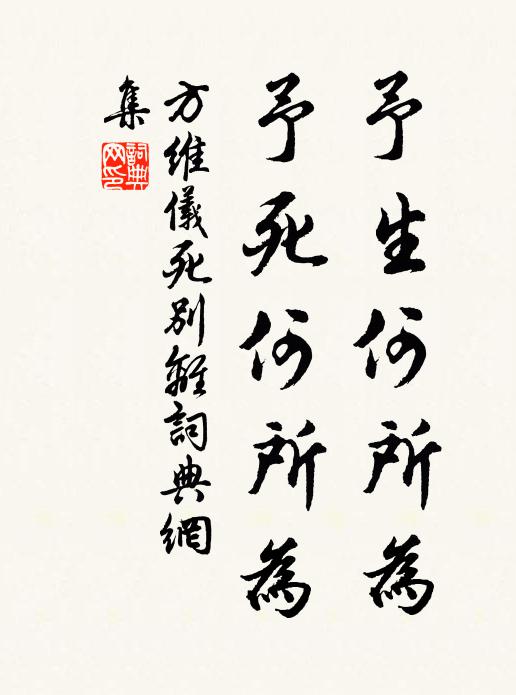 予生何所為
予死何所為
方維儀死別離詞典網
集
詞典
网印